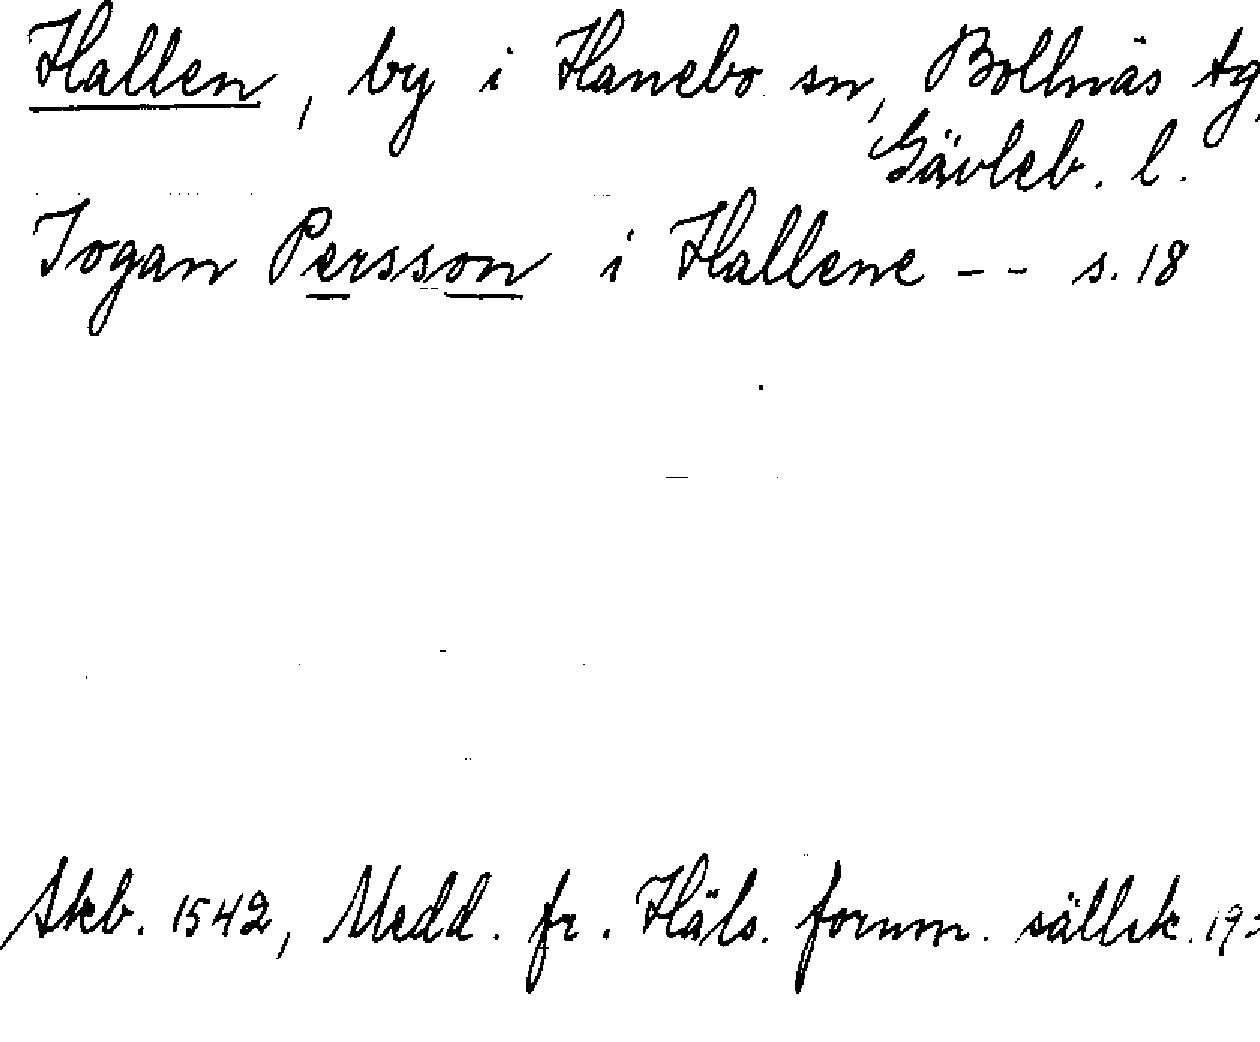 Hallen, by i Hanebo sn, Bollnäs tg,
Gävleb. l.
Jogan Persson i Hallene -- s. 18
Skb. 1542, Medd. fr. Häls. fornm. sällsk.